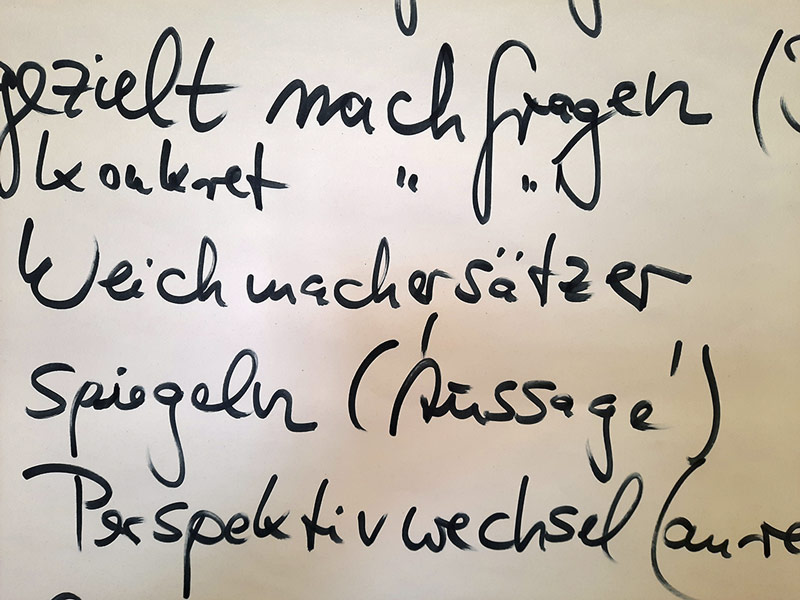 gezielt nachfragen (
konkret " "
Weichmachersätzer
spiegeln ('Aussage')
Perspektivwechsel (an-re